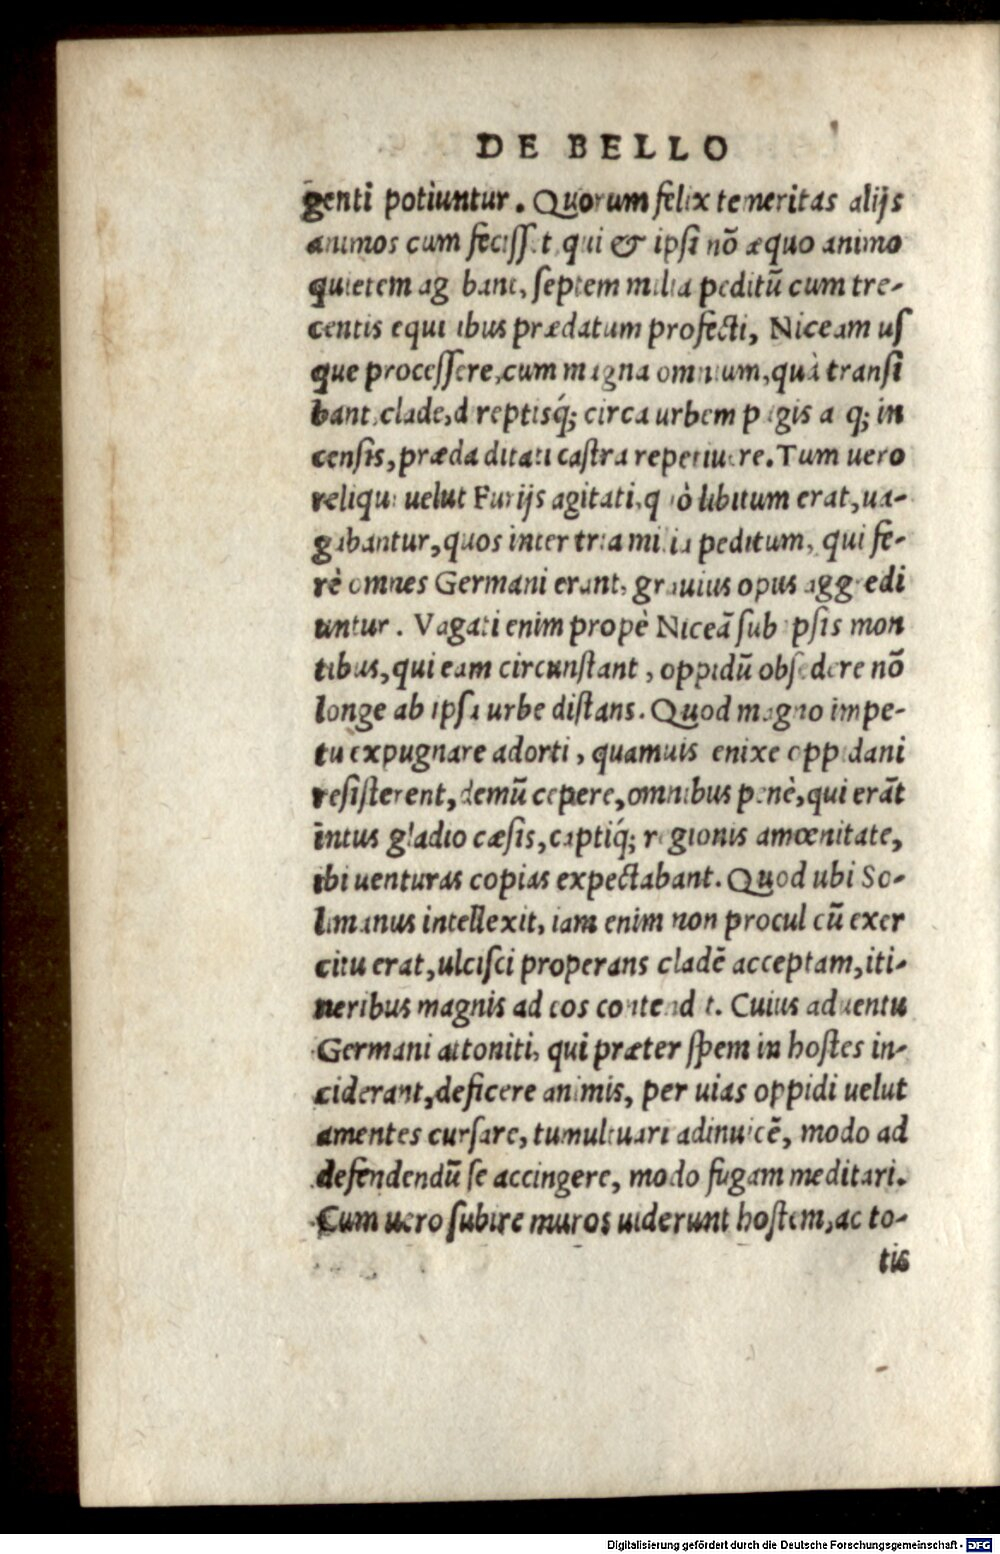 DE BELLO
genti potiuntur. Quorum felix temeritas alijs
animos cum fecisset, qui & ipsi nõ æquo animo
quietem agebant, septem milia peditũ cum tre-
centis equitibus prædatum profecti, Niceam us
que processere, cum magna omnium, quà transi
bant, clade, direptisq́; circa urbem pagis atq; in
censis, præda ditati castra repetiuere. Tum uero
reliqui uelut Furijs agitati, quò libitum erat, ua-
gabantur, quos inter tria milia peditum, qui fe-
rè omnes Germani erant, grauius opus aggredi
untur. Vagati enim propè Niceã sub ipsis mon
tibus, qui eam circunstant, oppidũ obsedere nõ
longe ab ipsa urbe distans. Quod magno impe-
tu expugnare adorti, quamuis enixe oppidani
resisterent, demũ cepere, omnibus penè, qui erãt
intus gladio cæsis, captiq́; regionis amœnitate,
ibi uenturas copias expectabant. Quod ubi So-
limanus intellexit, iam enim non procul cũ exer
citu erat, ulcisci properans cladẽ acceptam, iti-
neribus magnis ad eos contendit. Cuius aduentu
Germani attoniti, qui præter spem in hostes in-
ciderant, deficere animis, per uias oppidi uelut
amentes cursare, tumultuari adinuicẽ, modo ad
defendendũ se accingere, modo fugam meditari.
Cum uero subire muros uiderunt hostem, ac to-
tis
Digitalisierung gefördert durch die Deutsche Forschungsgemeinschaft - DFG